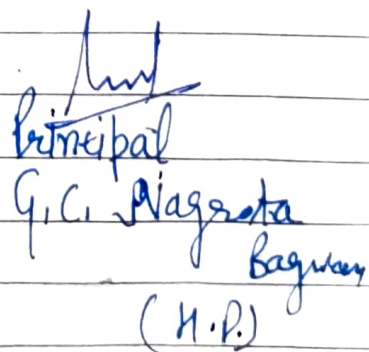 Principal
G.C. Nagrota
Bagwan
(H.P.)